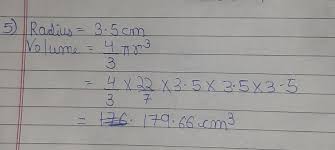 5) Radius = 3.5cm
Volume = 4/3 πr³
= 4/3 × 22/7 × 3.5 × 3.5 × 3.5
= 176. 179.66.cm³